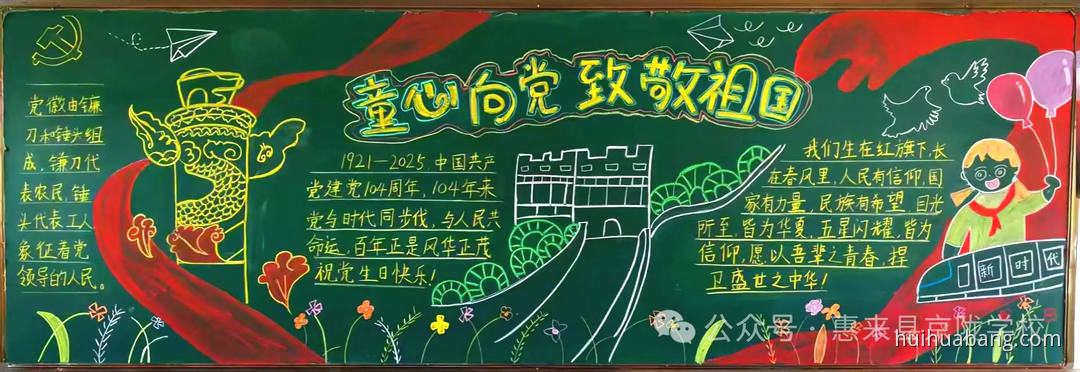 童心向党 致敬祖国
党徽由镰
刀和锤头组
成，镰刀代
表农民，锤
头代表工人
象征着党
领导的人民。
1921—2025 中国共产
党建党104周年，104年来
党与时代同步伐，与人民共
命运，百年正是风华正茂
祝党生日快乐！
我们生在红旗下，长
在春风里，人民有信仰，国
家有力量，民族有希望，目光
所至，皆为华夏，五星闪耀，皆为
信仰，愿以吾辈之青春，捍
卫盛世之中华！
新时代
公众号·惠来县京陇学校
huihuabang.com